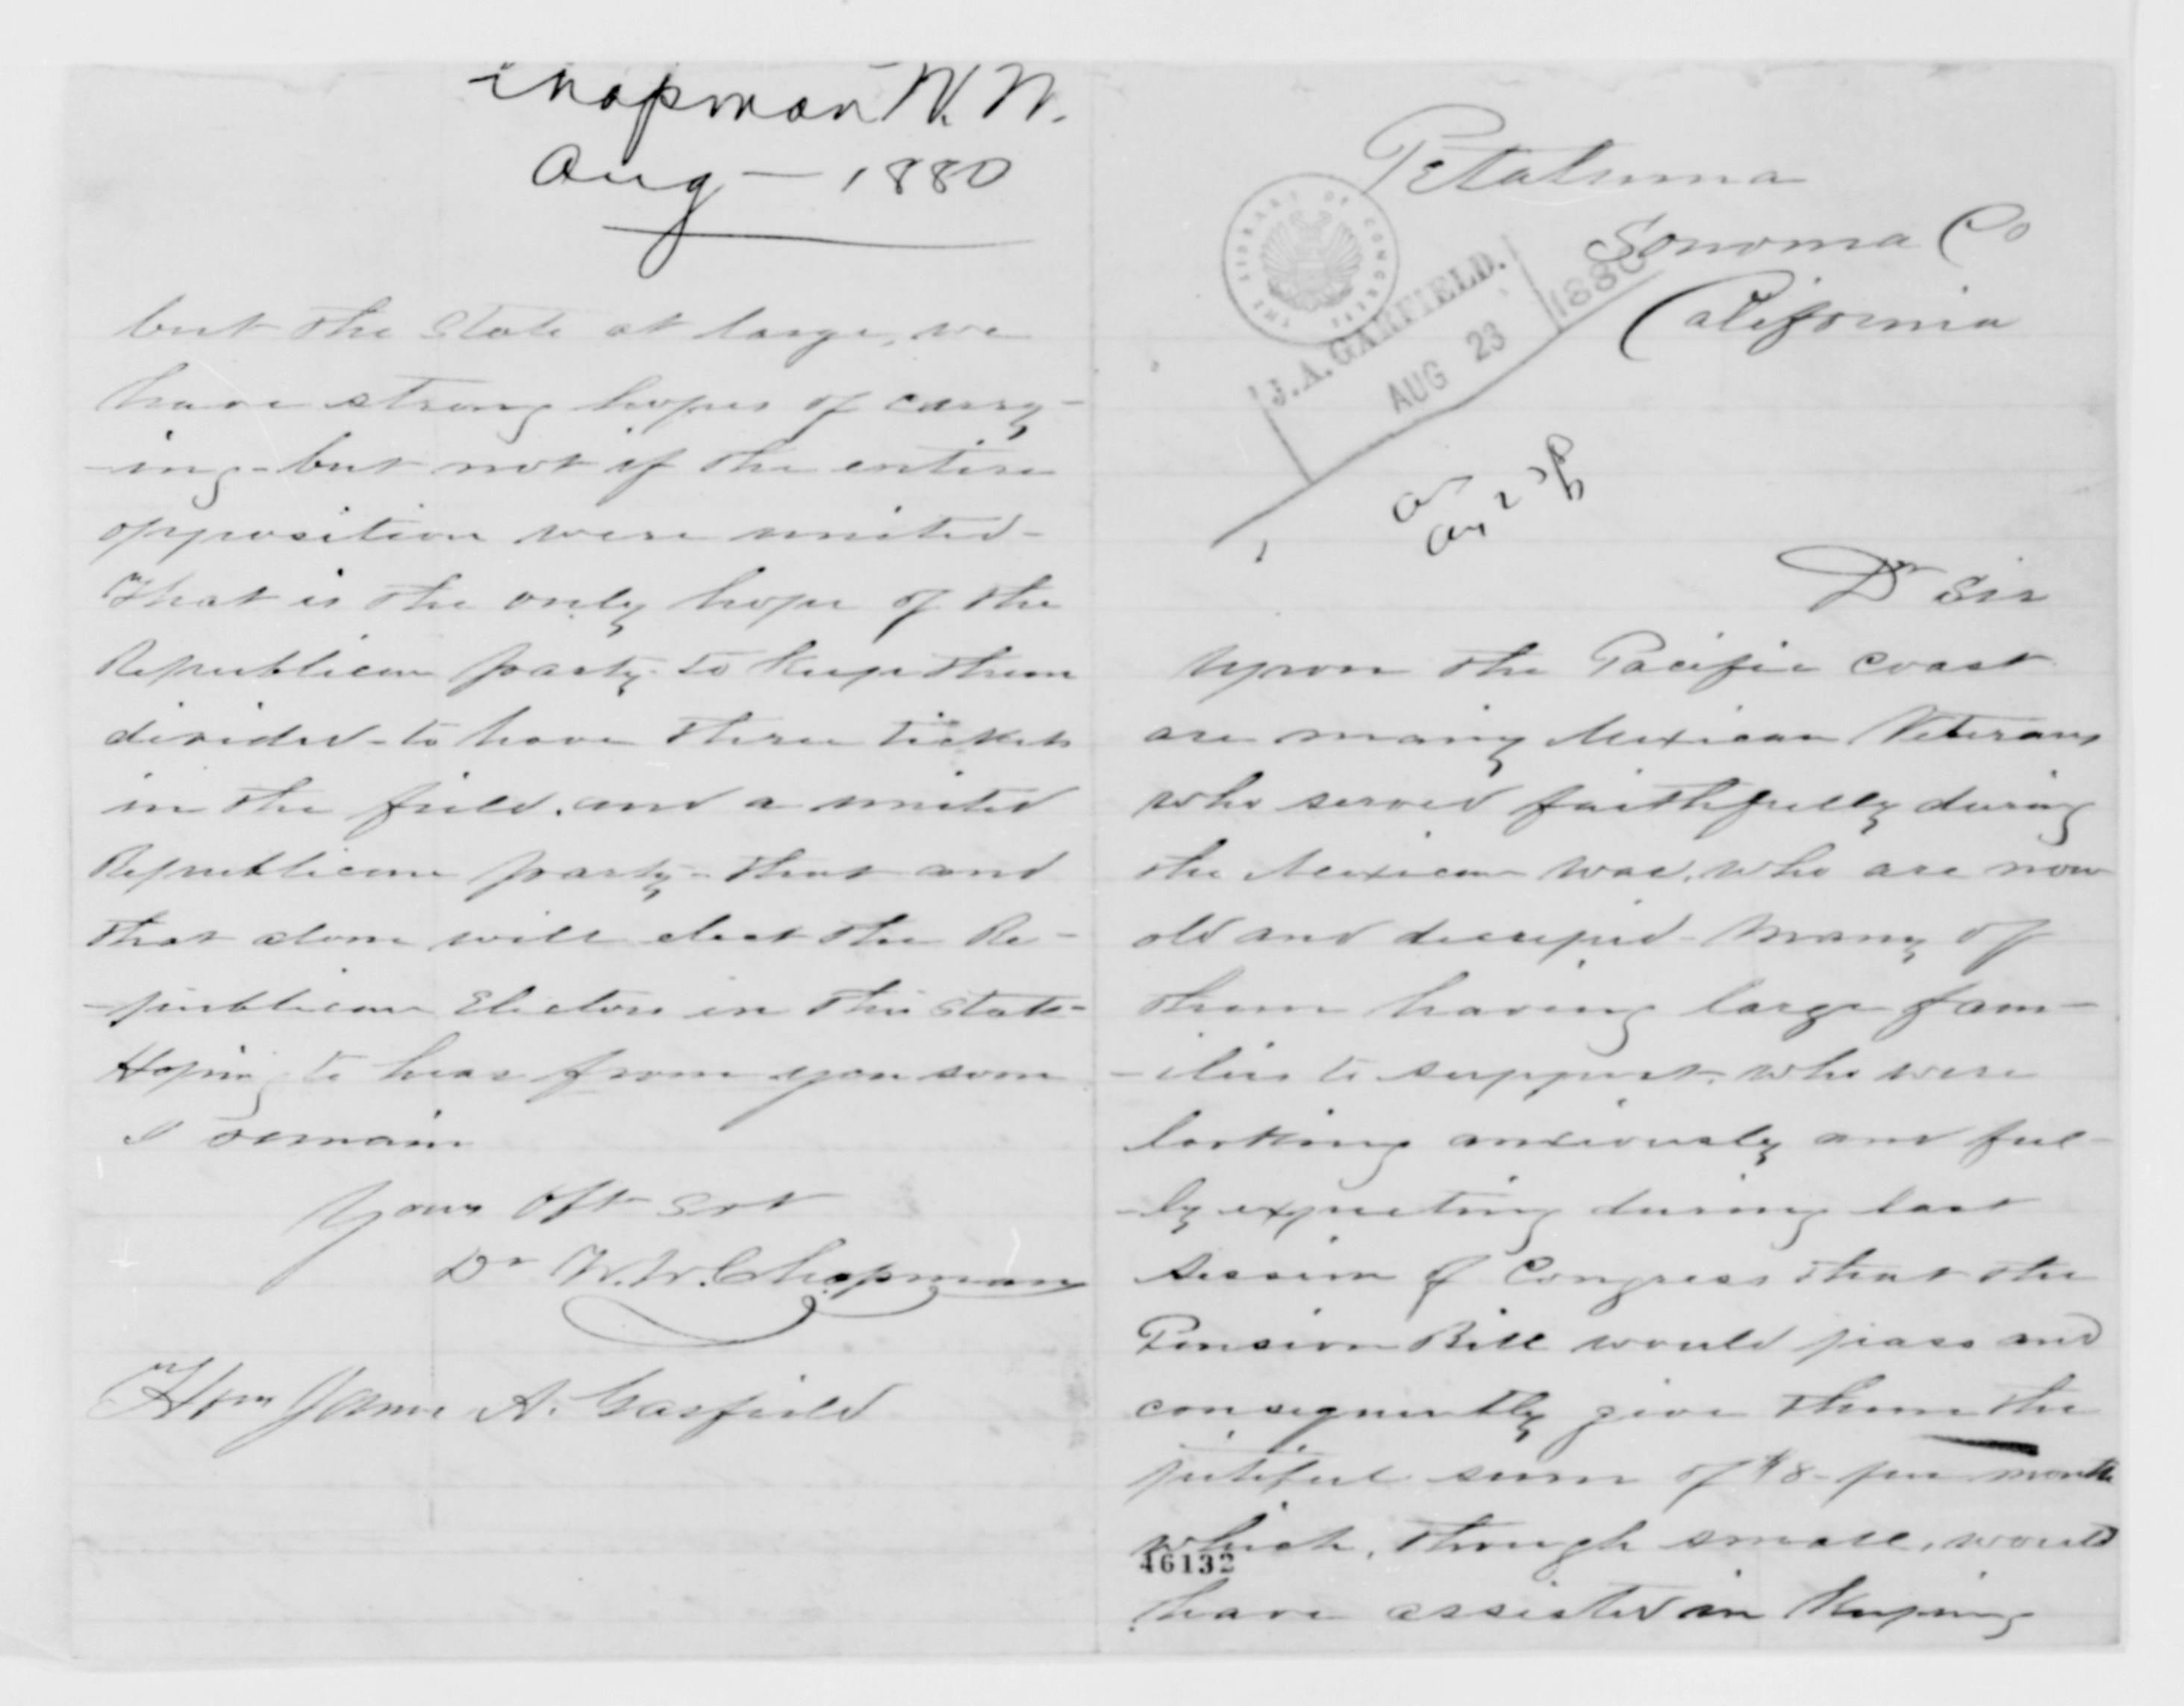 Chapman W. W.
Aug — 1880
but the State at large, we
have strong hopes of carry-
-ing - but not if the entire
opposition were united -
That is the only hope of the
Republican party - to keep them
divided - to have three tickets
in the field. and a united
Republican party - that and
that alone will elect the Re-
-publican Electors in this State -
Hoping to hear from you soon
I remain
Yours Obt Svt
Dr W. W. Chapman
Hon James A. Garfield
Petaluma
Sonoma Co
California
THE LIBRARY OF CONGRESS
J. A. GARFIELD.
AUG 23
1880
Dr Sir
Upon the Pacific coast
are many Mexican Veterans
who served faithfully during
the Mexican war, who are now
old and decrepid - Many of
them having large fam-
-ilies to support, who were
looking anxiously and ful-
-ly expecting during last
session of Congress that the
Pension Bill would pass and
consequently give them the
pitiful sum of $8 - per month
which, though small, would
46132
have assisted in keeping